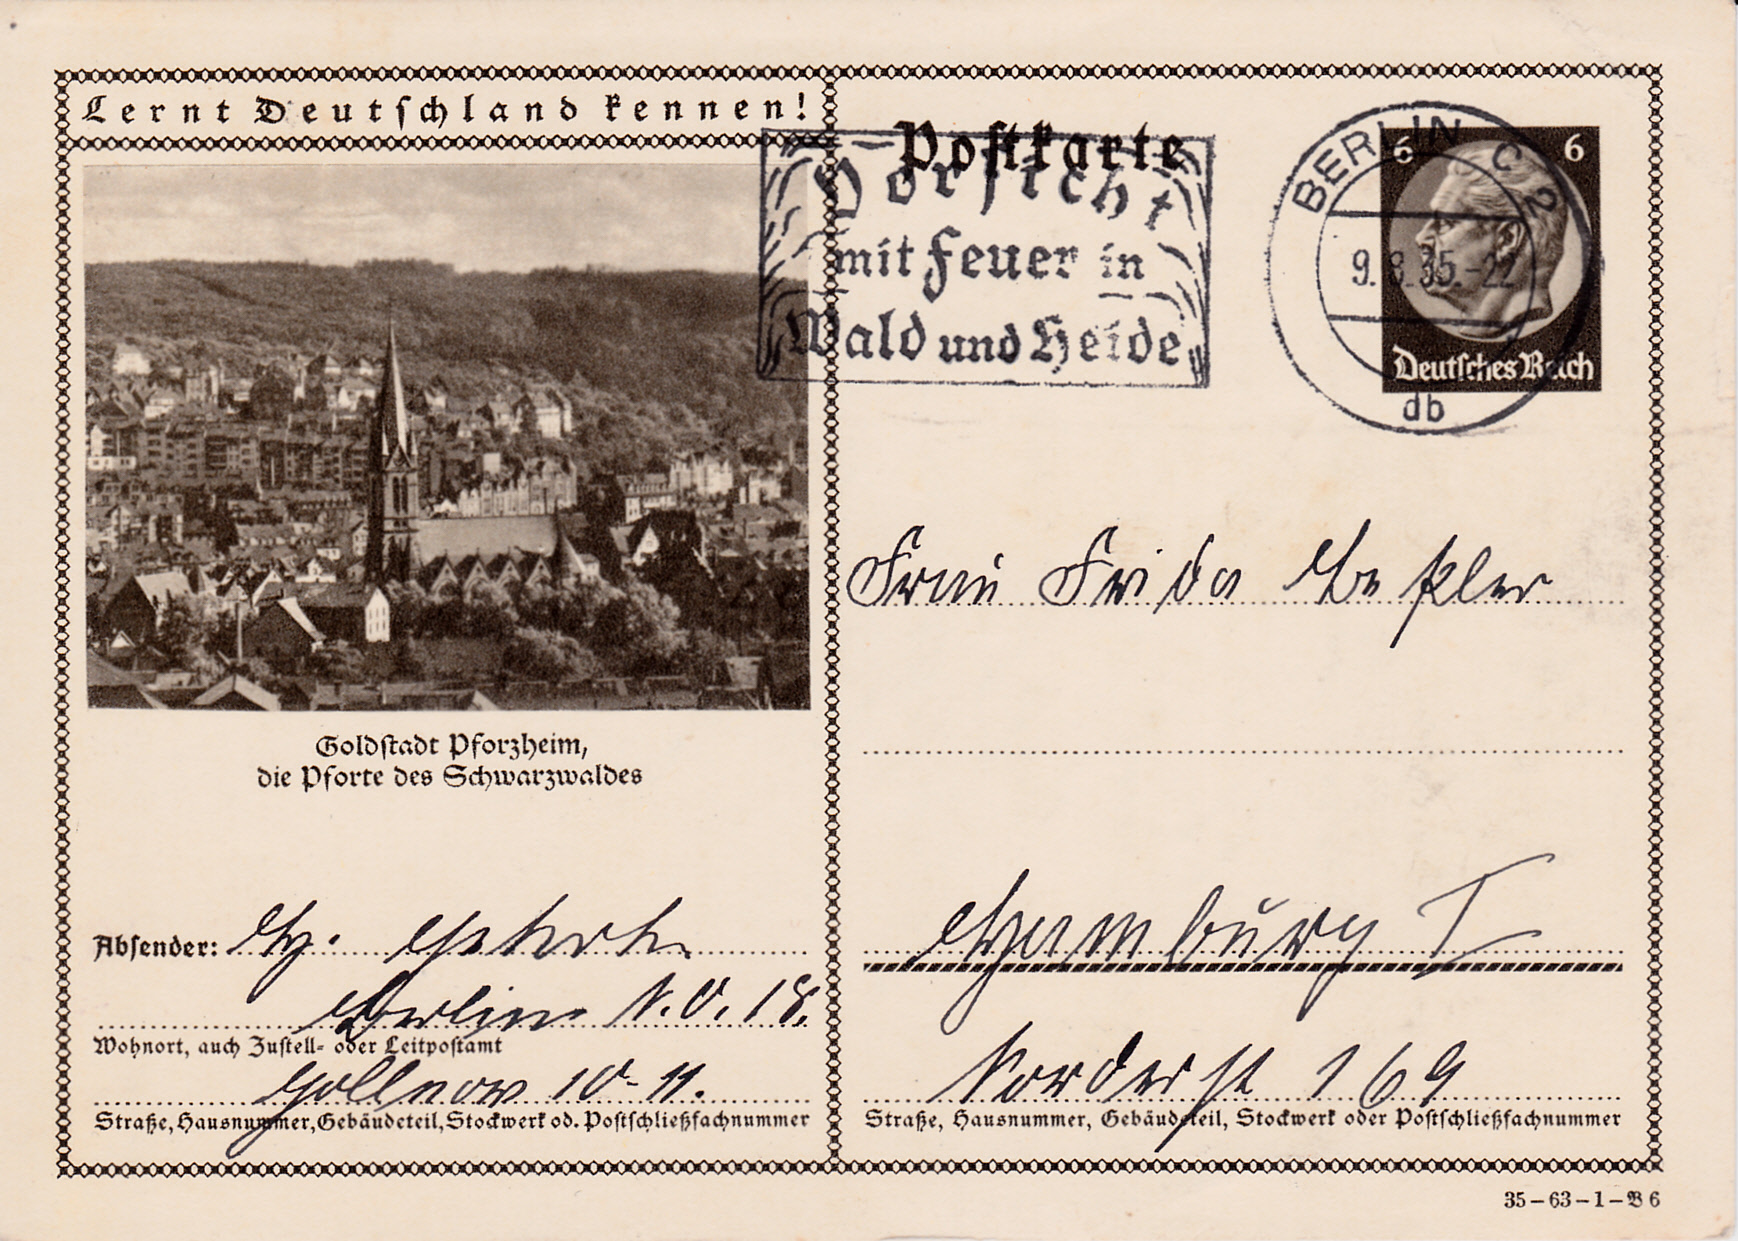 Lernt Deutschland kennen!
Postkarte
Vorsicht
mit Feuer in
Wald und Heide
BERLIN C 2
9.8.35.-22
db
6 6
Deutsches Reich
Goldstadt Pforzheim,
die Pforte des Schwarzwaldes
Frau Frida
Hamburg 1
Norderst 169
Absender: H.
Berlin N.O. 18.
Wohnort, auch Zustell- oder Leitpostamt
Gollnow 10-11.
Straße, Hausnummer, Gebäudeteil, Stockwerk od. Postschließfachnummer
Straße, Hausnummer, Gebäudeteil, Stockwerk oder Postschließfachnummer
35-63-1-B 6